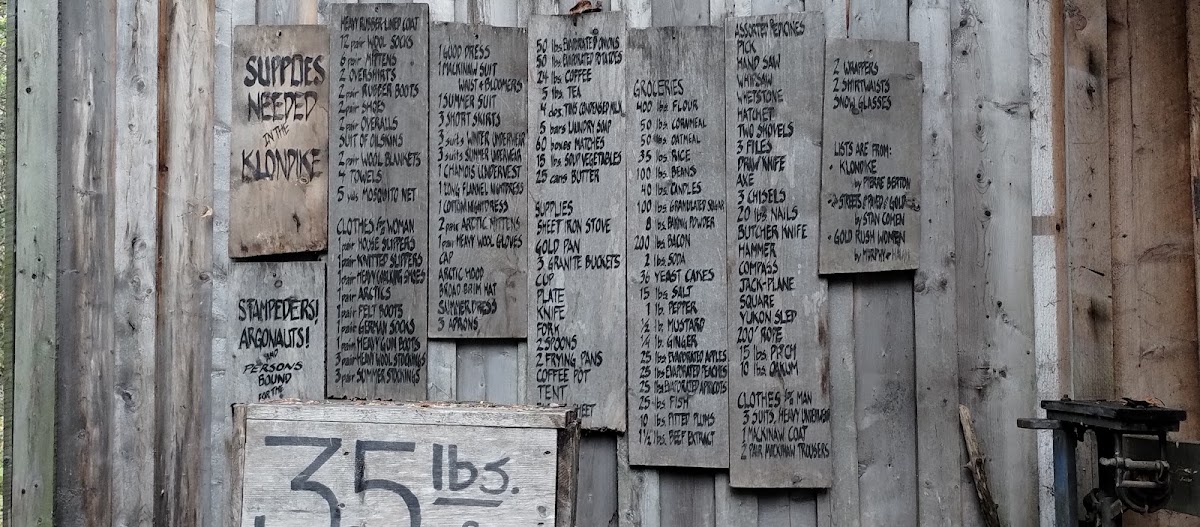 SUPPLIES
NEEDED
IN THE
KLONDIKE
STAMPEDERS!
ARGONAUTS!
AND
PERSONS
BOUND
FOR THE
HEAVY RUBBER-LINED COAT
12 pair WOOL SOCKS
6 pair MITTENS
2 OVERSHIRTS
2 pair RUBBER BOOTS
2 pair SHOES
2 pair OVERALLS
SUIT OF OILSKINS
2 pair WOOL BLANKETS
4 TOWELS
5 yds MOSQUITO NET
CLOTHES for WOMAN
1 pair HOUSE SLIPPERS
1 pair KNITTED SLIPPERS
1 pair HEAVY WALKING SHOES
1 pair ARCTICS
1 pair FELT BOOTS
1 pair GERMAN SOCKS
1 pair HEAVY GUM BOOTS
3 pair HEAVY WOOL STOCKINGS
3 pair SUMMER STOCKINGS
1 GOOD DRESS
1 MACKINAW SUIT
WAIST & BLOOMERS
1 SUMMER SUIT
3 SHORT SKIRTS
3 suits WINTER UNDERWEAR
3 suits SUMMER UNDERWEAR
1 CHAMOIS UNDERVEST
1 LONG FLANNEL NIGHTDRESS
1 COTTON NIGHTDRESS
2 pair ARCTIC MITTENS
1 pair HEAVY WOOL GLOVES
CAP
ARCTIC HOOD
BROAD BRIM HAT
SUMMER DRESS
3 APRONS
50 lbs EVAPORATED ONIONS
50 lbs EVAPORATED POTATOES
24 lbs COFFEE
5 lbs TEA
4 doz. TINS CONDENSED MILK
5 bars LAUNDRY SOAP
60 boxes MATCHES
15 lbs SOUP VEGETABLES
25 cans BUTTER
SUPPLIES
SHEET IRON STOVE
GOLD PAN
3 GRANITE BUCKETS
CUP
PLATE
KNIFE
FORK
2 SPOONS
2 FRYING PANS
COFFEE POT
TENT
GROCERIES
400 lbs. FLOUR
50 lbs. CORNMEAL
50 lbs. OATMEAL
35 lbs. RICE
100 lbs. BEANS
40 lbs. CANDLES
100 lbs. GRANULATED SUGAR
8 lbs. BAKING POWDER
200 lbs. BACON
2 lbs. SODA
36 YEAST CAKES
15 lbs. SALT
1 lb. PEPPER
½ lb. MUSTARD
¼ lb. GINGER
25 lbs EVAPORATED APPLES
25 lbs EVAPORATED PEACHES
25 lbs EVAPORATED APRICOTS
25 lbs. FISH
10 lbs. PITTED PLUMS
1½ lbs. BEEF EXTRACT
ASSORTED MEDICINES
PICK
HAND SAW
WHIPSAW
WHETSTONE
HATCHET
TWO SHOVELS
3 FILES
DRAW KNIFE
AXE
3 CHISELS
20 lbs. NAILS
BUTCHER KNIFE
HAMMER
COMPASS
JACK-PLANE
SQUARE
YUKON SLED
200' ROPE
15 lbs. PITCH
10 lbs. OAKUM
CLOTHES for MAN
3 SUITS, HEAVY UNDERWEAR
1 MACKINAW COAT
2 PAIR MACKINAW TROUSERS
2 WRAPPERS
2 SHIRTWAISTS
SNOW GLASSES
LISTS ARE FROM:
• KLONDIKE
by PIERRE BERTON
by STAN COHEN
• GOLD RUSH WOMEN
by MURPHY
35 lbs.